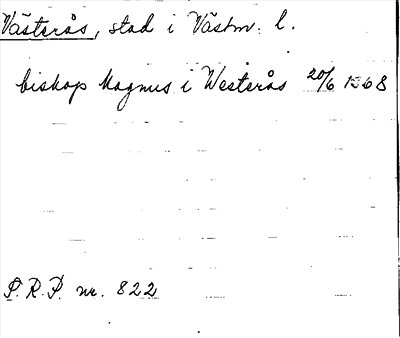 Västerås, stad i Västm. l.
biskop Magnus i Westerås 20/6 1368
P.R.P. nr. 822